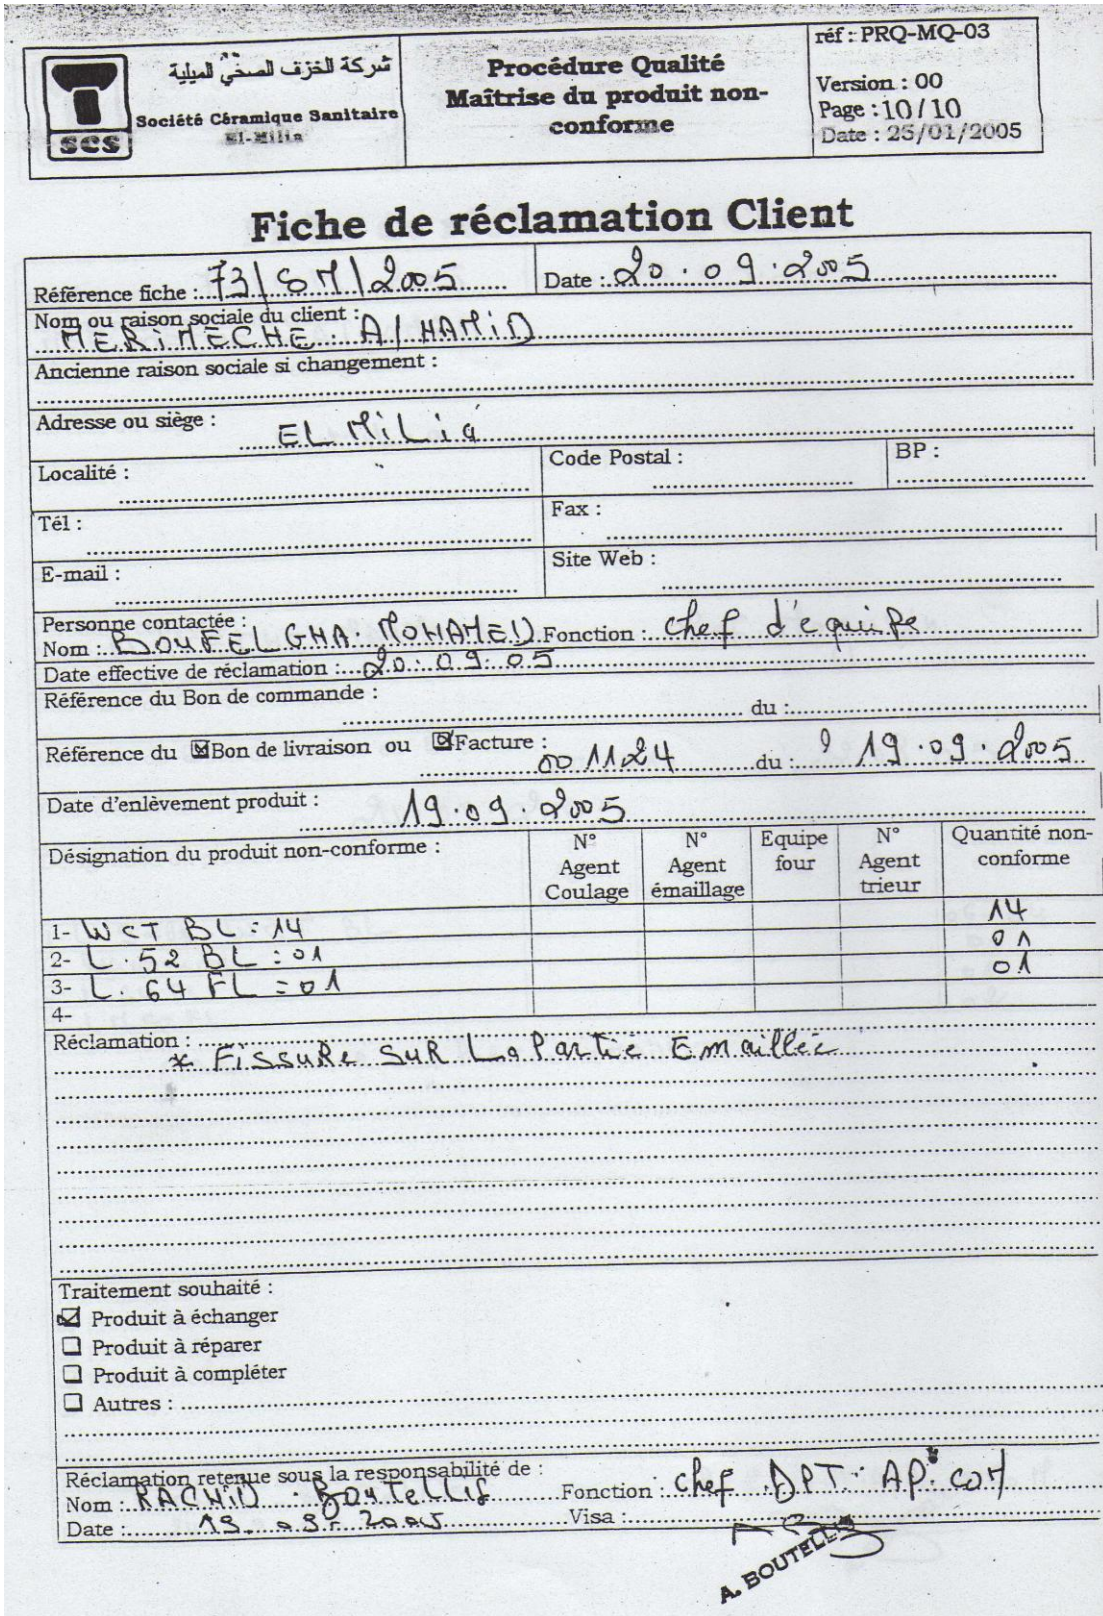 شركة الخزف الصحي الميلية
Société Céramique Sanitaire
El-Milia
SCS
Procédure Qualité
Maîtrise du produit non-
conforme
réf : PRQ-MQ-03
Version : 00
Page : 10/10
Date : 25/01/2005
Fiche de réclamation Client
Référence fiche : 73/SM/2005 Date : 20.09.2005
Nom ou raison sociale du client :
MERIMECHE A/HAMID
Ancienne raison sociale si changement :
Adresse ou siège : EL MiLia
Localité : Code Postal : BP :
Tél : Fax :
E-mail : Site Web :
Personne contactée :
Nom : BOUFELGHA. MOHAMED Fonction : chef d'équipe
Date effective de réclamation : 20.09.05
Référence du Bon de commande : du :
Référence du Bon de livraison ou Facture : 001124 du : 19.09.2005
Date d'enlèvement produit : 19.09.2005
Désignation du produit non-conforme : N° Agent Coulage N° Agent émaillage Equipe four N° Agent trieur Quantité non-conforme
1- WCT BL : 14 14
2- L. 52 BL : 01 01
3- L. 64 FL = 01 01
4-
Réclamation :
* FissuRe SuR La Partie Emaillée
Traitement souhaité :
Produit à échanger
Produit à réparer
Produit à compléter
Autres :
Réclamation retenue sous la responsabilité de :
Nom : RACHID. BOUTELLIS Fonction : chef DPT. AP. COM
Date : 19.09.2005 Visa :
A. BOUTELLIS